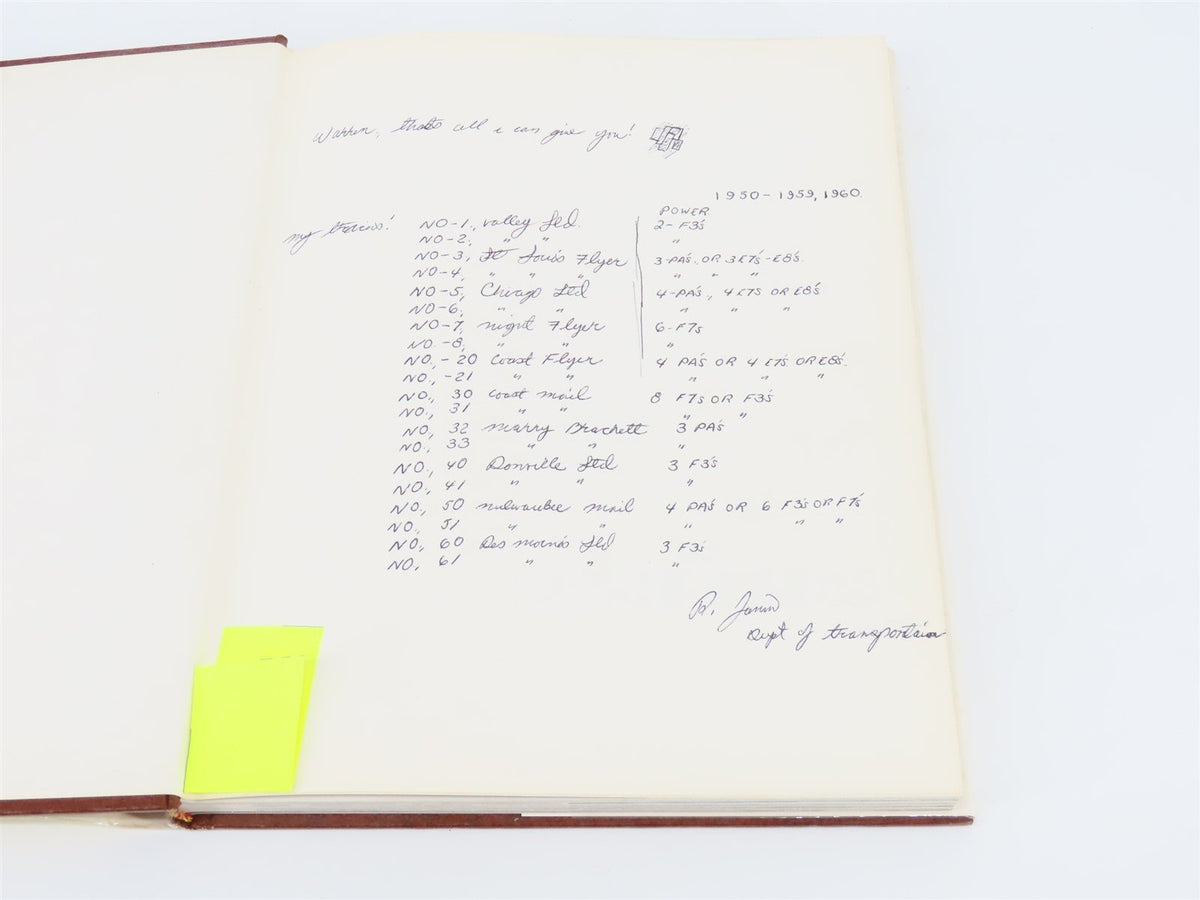 Warren, thats all i can give you!
1950-1959, 1960.
POWER
my trains! NO-1., valley Ltd. 2-F3's
NO-2., " " "
NO-3, St Louis Flyer 3-PA's. OR 3 E7's-E8's.
NO-4, " " " " " "
NO-5, Chicago Ltd 4-PA's., 4 E7S OR E8's
NO-6, " " " " "
NO-7, night Flyer 6-F7s
NO.-8, " " "
NO,-20 Coast Flyer 4 PA's OR 4 E7's. OR E8's.
NO., -21 " " " " "
NO., 30 Coast mail 8 F7s OR F3's
NO., 31 " " " "
NO, 32 Marry Brachett 3 PA's
NO., 33 " " "
NO, 40 Donville Ltd 3 F3's
NO., 41 " " "
NO., 50 milwaukee mail 4 PA's OR 6 F3's OR F7's
NO., 51 " " " " "
NO., 60 Des moines Ltd 3 F3's
NO., 61 " " "
R.
Dept of transportaion